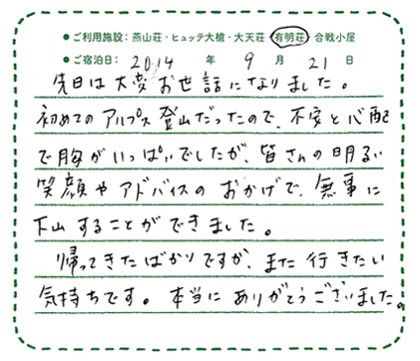 ●ご利用施設：燕山荘・ヒュッテ大槍・大天荘 有明荘 合戦小屋
●ご宿泊日： 2014 年 9 月 21 日
先日は大変お世話になりました。
初めてのアルプス登山だったので、不安と心配
で胸がいっぱいでしたが、皆さんの明るい
笑顔やアドバイスのおかげで、無事に
下山することができました。
帰ってきたばかりですが、また行きたい
気持ちです。本当にありがとうございました。